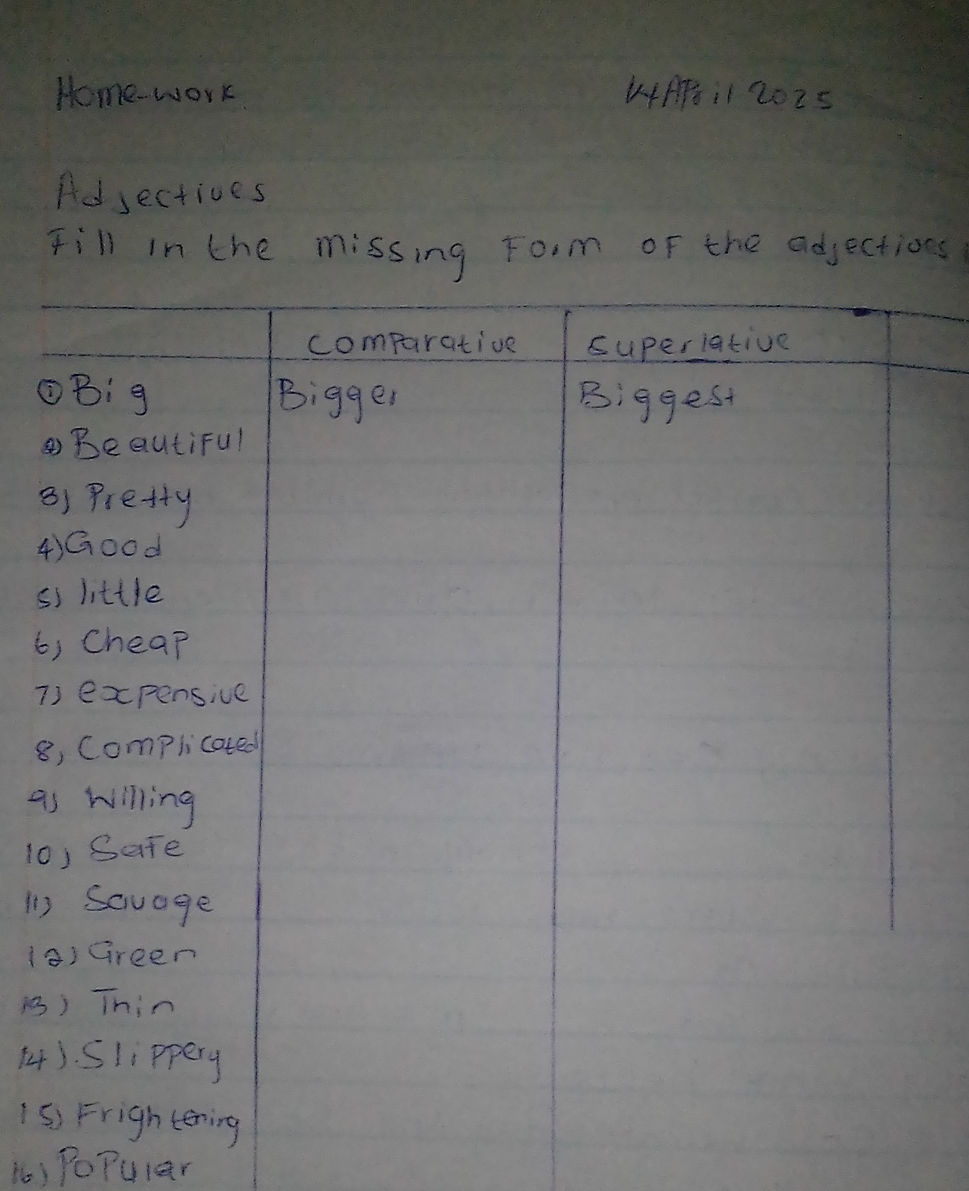 Home-work 14 April 2025
Adjectives
Fill in the missing form of the adjectives
Comparative Superlative
① Big Bigger Biggest
② Beautiful
3) Pretty
4) Good
5) little
6) Cheap
7) expensive
8, Complicated
9) Willing
10) Safe
11) Savage
12) Green
13) Thin
14) Slippery
15) Frightening
16) Popular